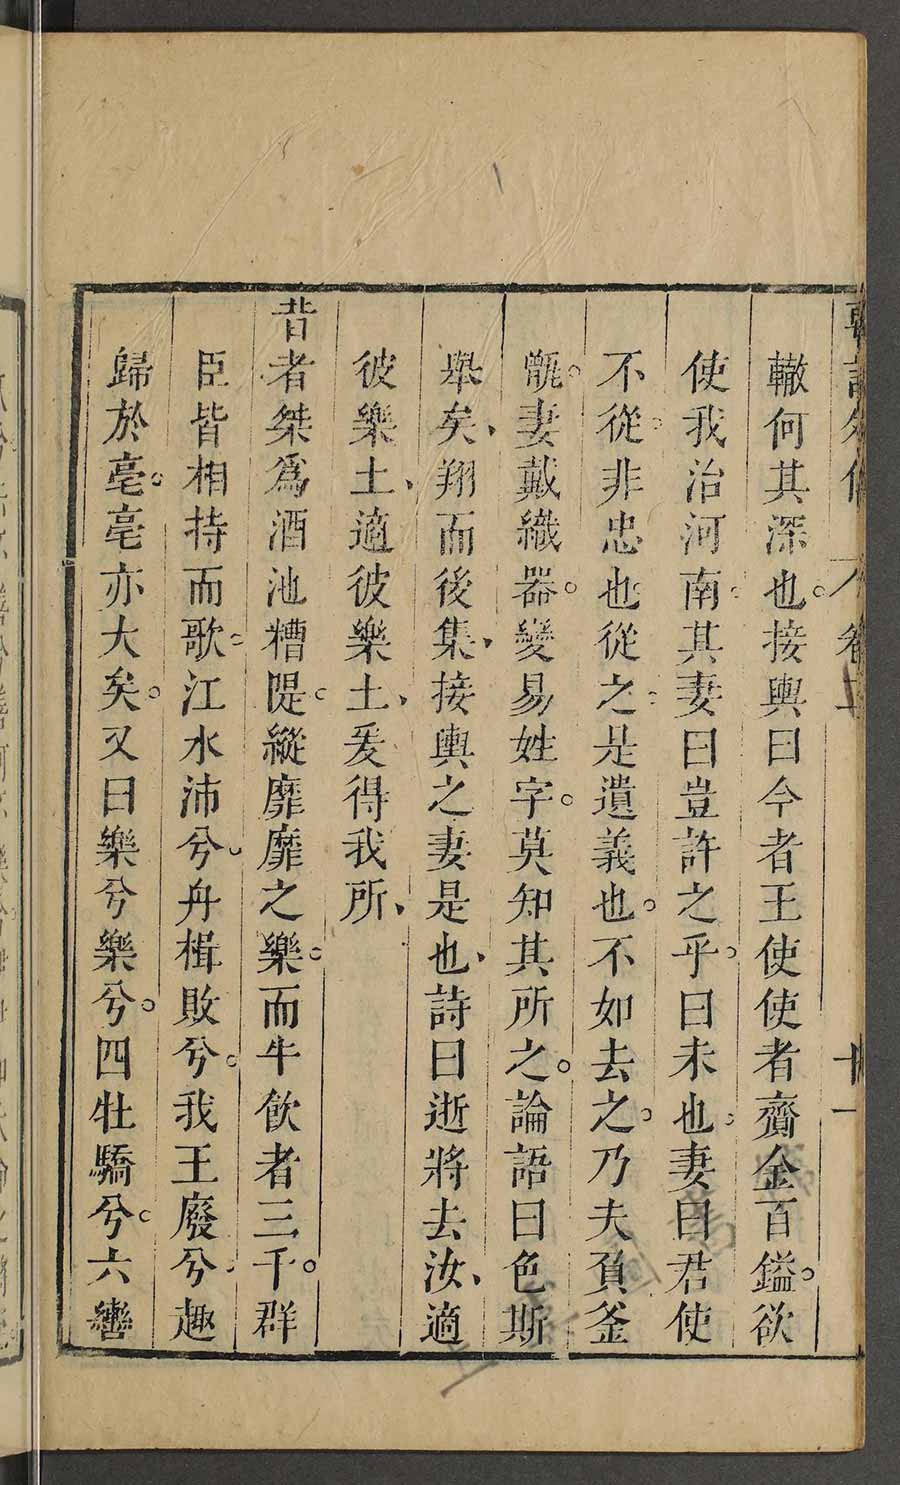 轍何其深也。接輿曰今者王使使者齎金百鎰。欲
使我治河南。其妻曰豈許之乎。曰未也。妻曰君使
不從。非忠也從之。是遺義也。不如去之。乃夫負釜
甑。妻戴織器。變易姓字。莫知其所之。論語曰色斯
舉矣、翔而後集、接輿之妻是也、詩曰逝將去汝、適
彼樂土、適彼樂土、爰得我所、
昔者桀爲酒池糟隄。縱靡靡之樂。而牛飲者三千。群
臣皆相持而歌。江水沛兮、舟楫敗兮。我王廢兮、趣
歸於亳。亳亦大矣。又曰樂兮樂兮。四牡驕兮。六轡